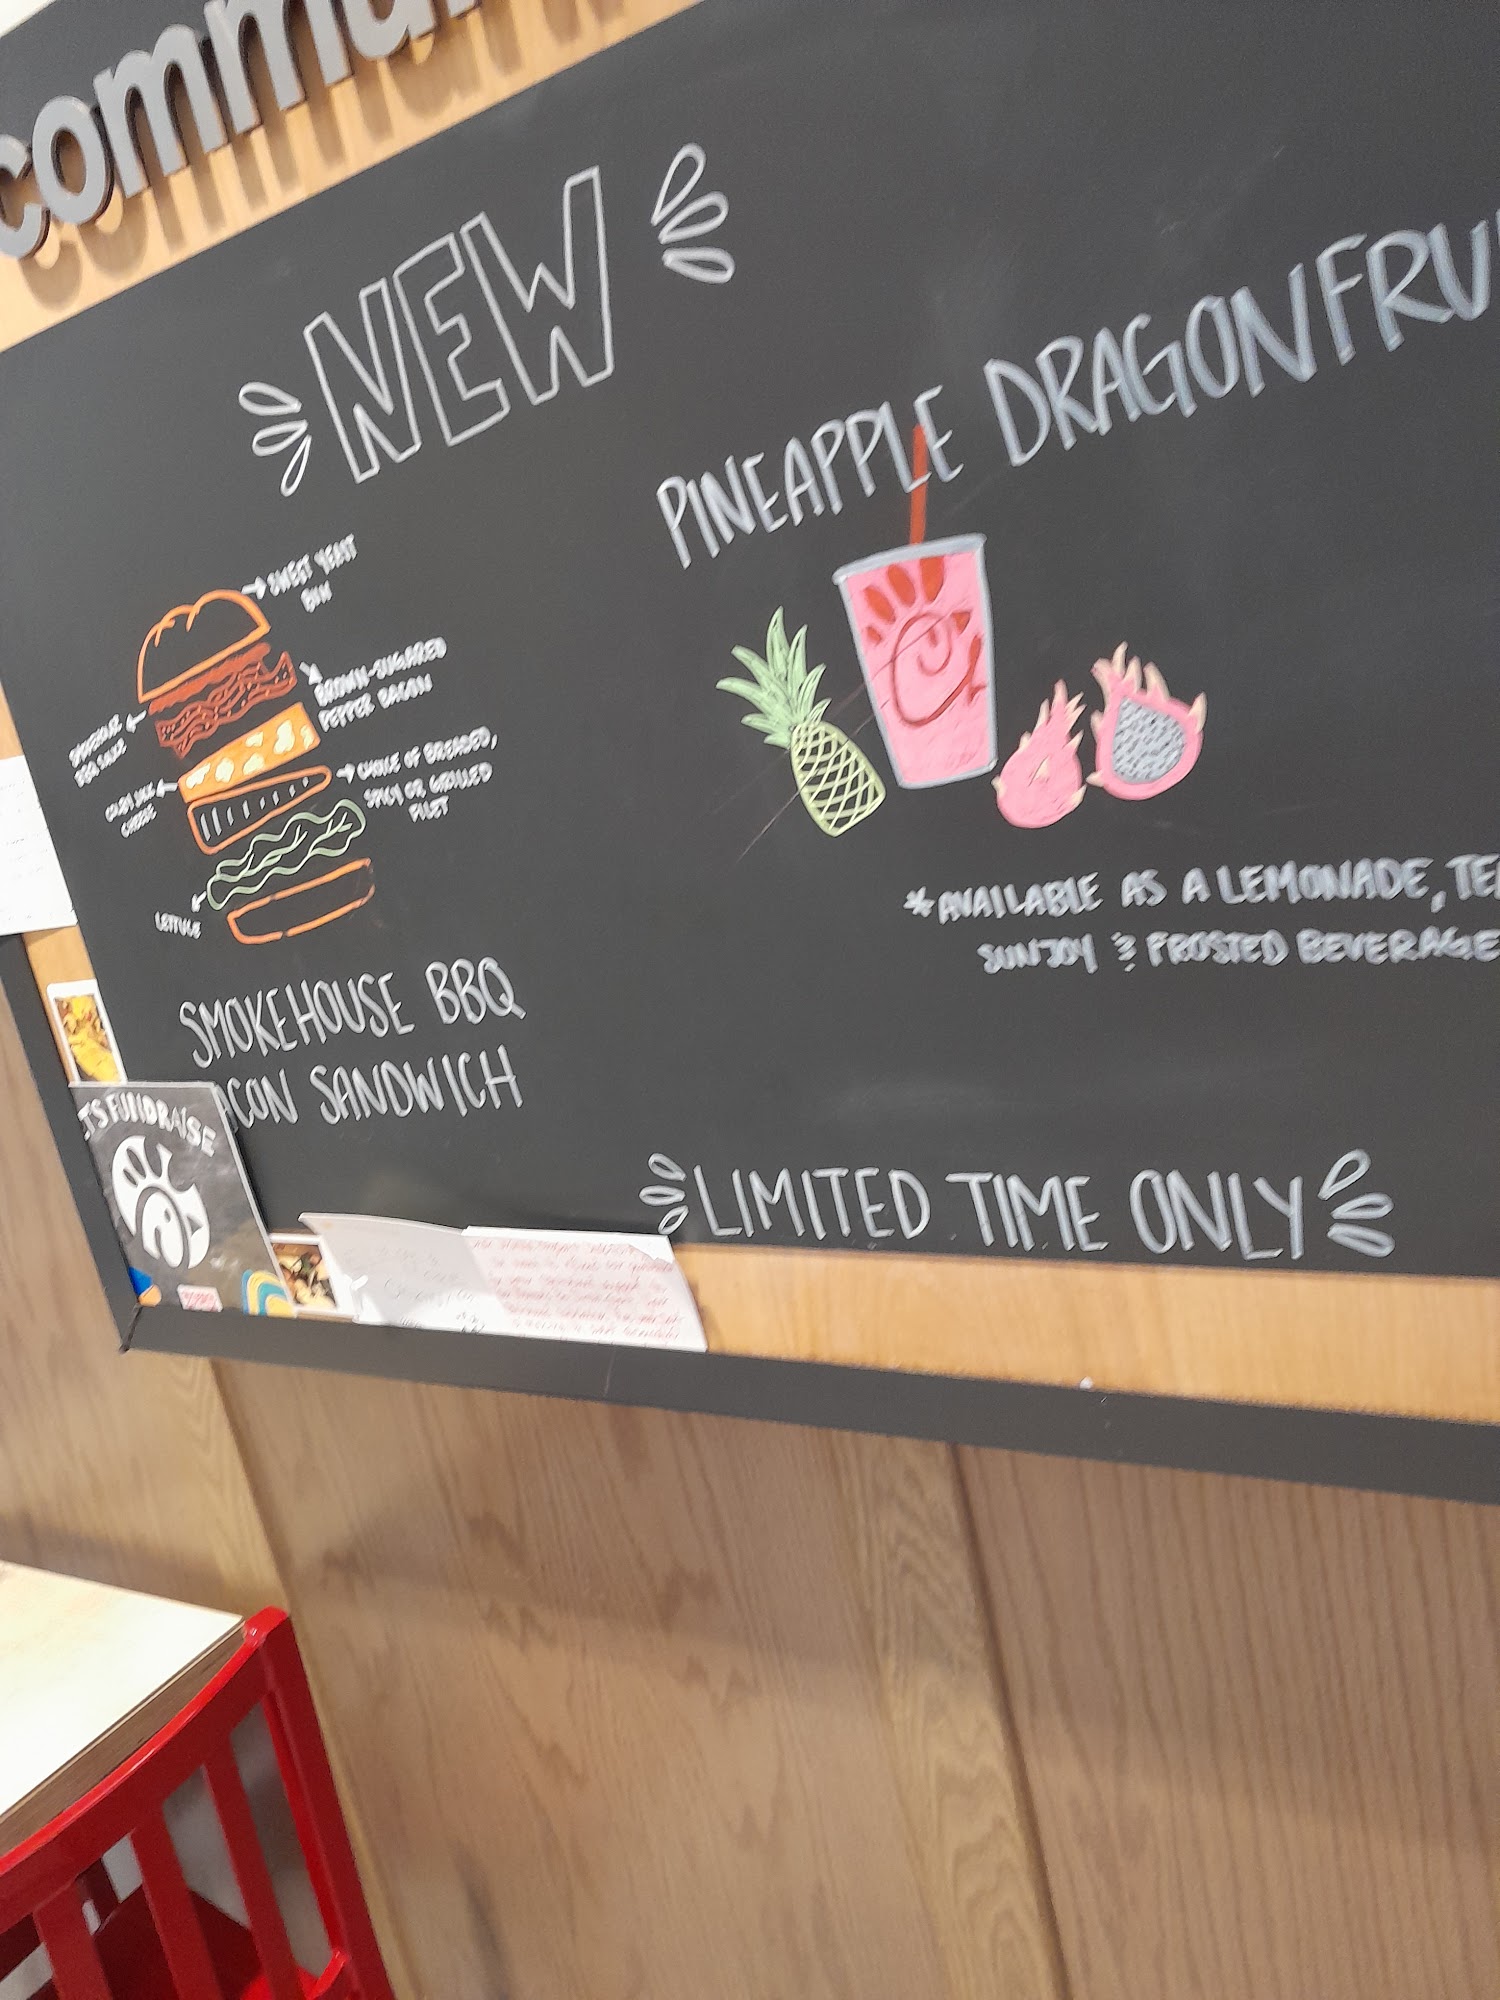 commun
NEW
PINEAPPLE DRAGONFRUI
SWEET YEAST
BUN
BROWN-SUGARED
PEPPER BACON
SMOKEHOUSE
BBQ SAUCE
COLBY JACK
CHEESE
CHOICE OF BREADED,
SPICY OR GRILLED
FILET
LETTUCE
*AVAILABLE AS A LEMONADE, TEA
SUNJOY & FROSTED BEVERAGE
SMOKEHOUSE BBQ
ACON SANDWICH
LIMITED TIME ONLY
ET'S FUNDRAISE